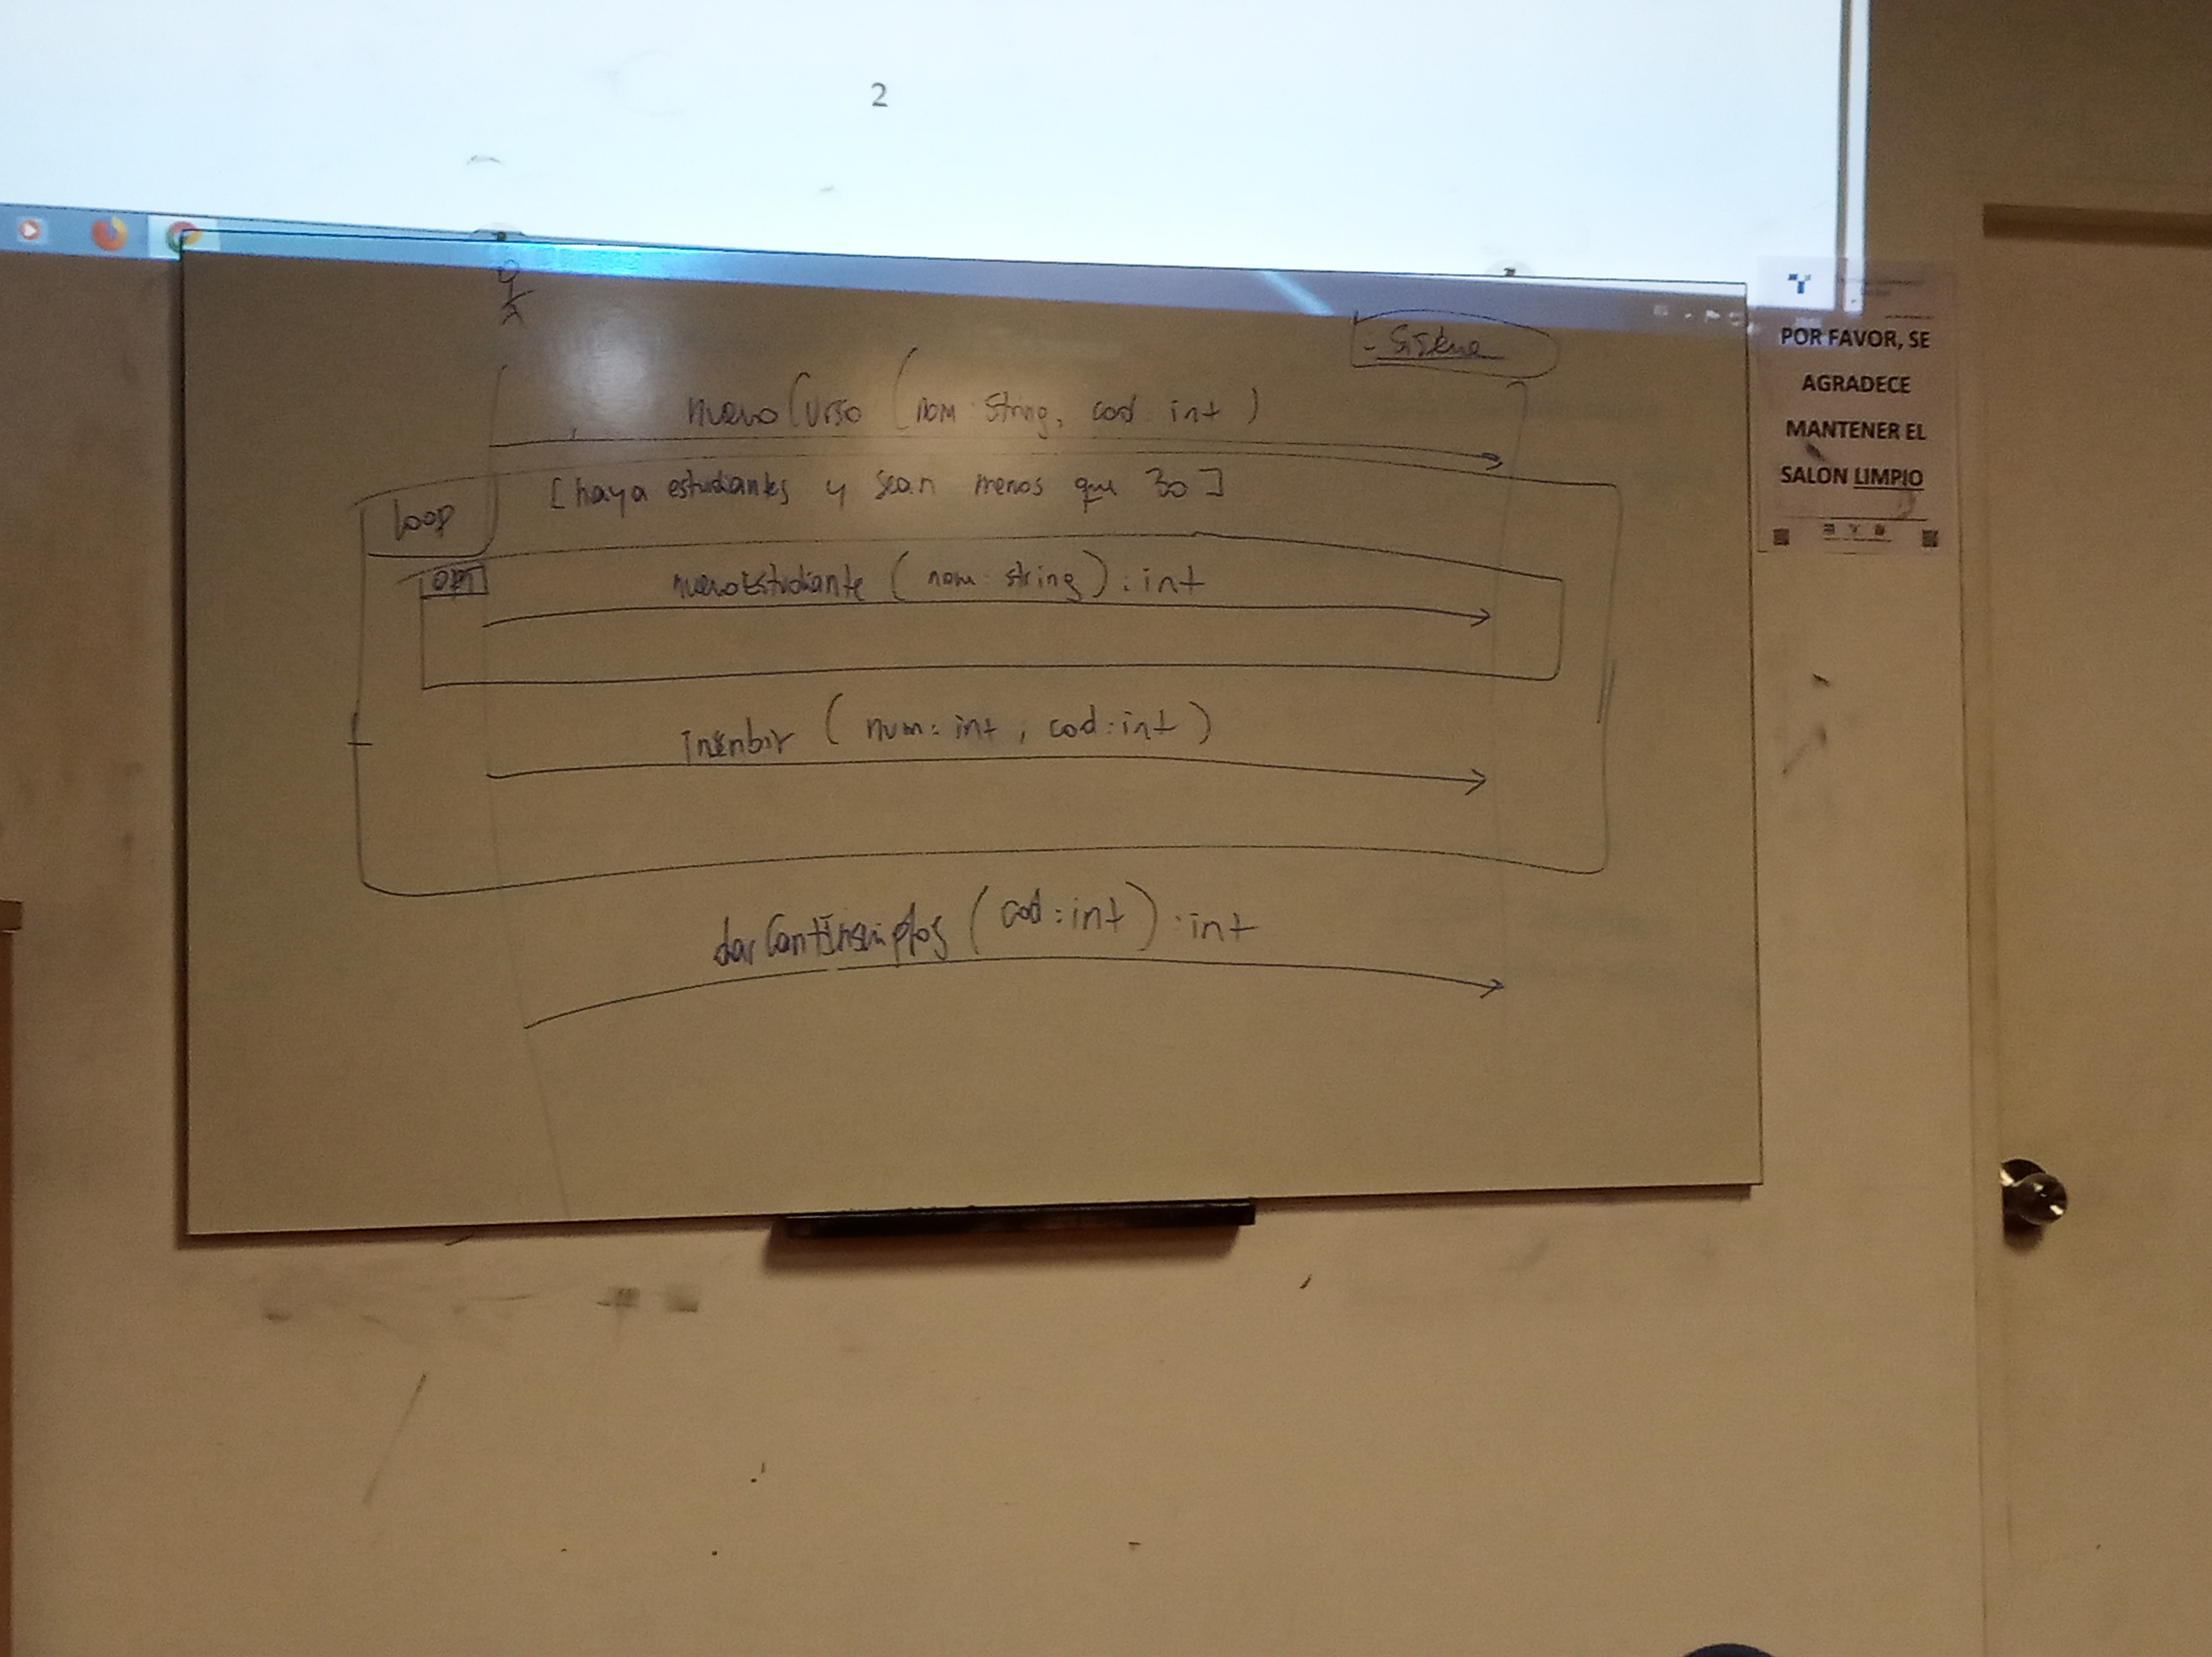 2
: Sistema
nuevoCurso (nom: String, cod: int)
[haya estudiantes y sean menos que 30]
loop
OPT
nuevoEstudiante (nom: string) : int
Inscribir (num: int, cod: int)
darCantInscriptos (cod: int) : int
POR FAVOR, SE
AGRADECE
MANTENER EL
SALON LIMPIO